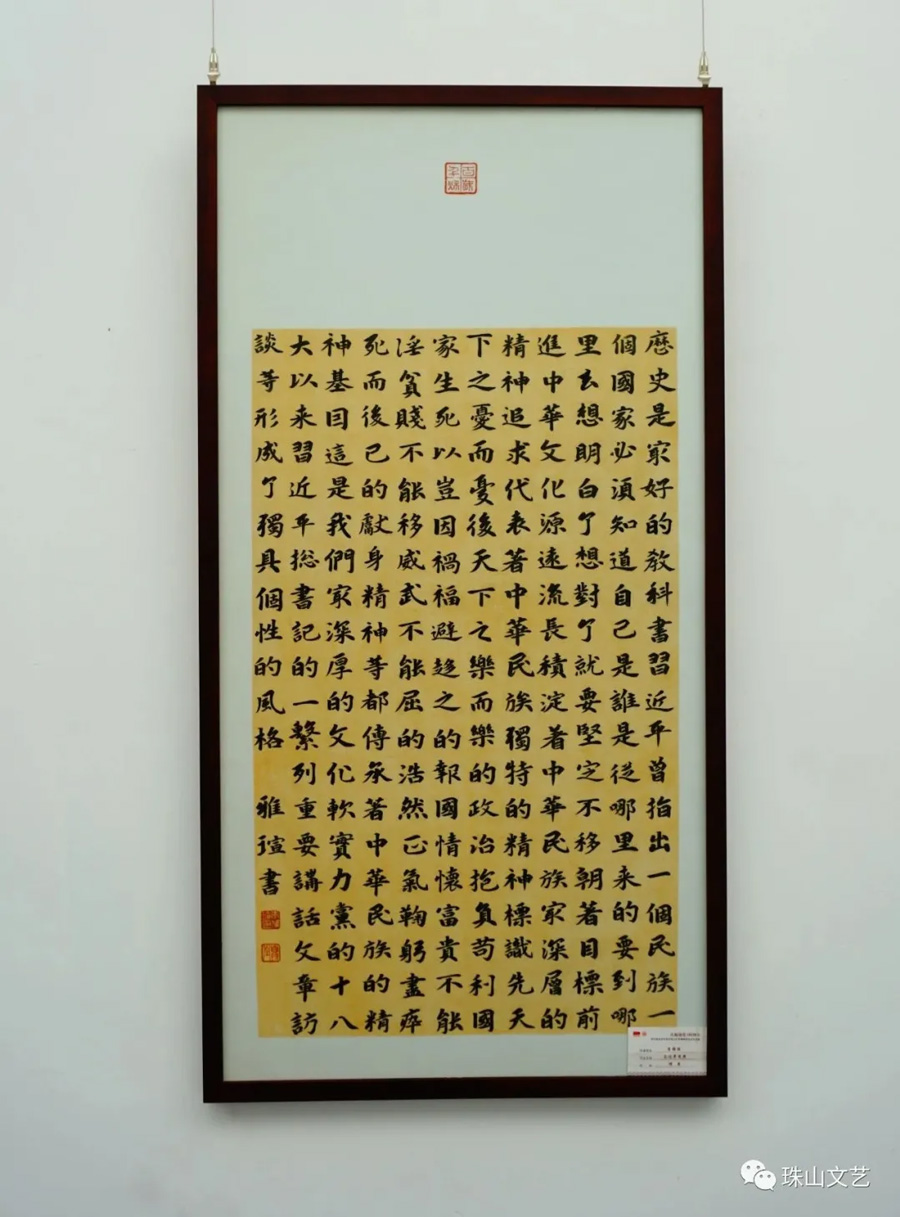 歷史是㝡好的教科書習近平曾指出一個民族一
個國家必須知道自己是誰是從哪里来的要到哪
里去想明白了想對了就要堅定不移朝着目標前
進中華文化源遠流長積淀着中華民族㝡深層的
精神追求代表著中華民族獨特的精神標識先天
下之憂而憂後天下之樂而樂的政治抱負苟利國
家生死以豈因禍福避趋之的報國情懷富貴不能
淫貧賤不能移威武不能屈的浩然正氣鞠躬盡瘁
死而後已的獻身精神等都傳承著中華民族的精
神基因這是我們㝡深厚的文化軟實力黨的十八
大以来習近平総書記的一繫列重要講話文章訪
談等形成了獨具個性的風格
雅瑄書
珠山文艺